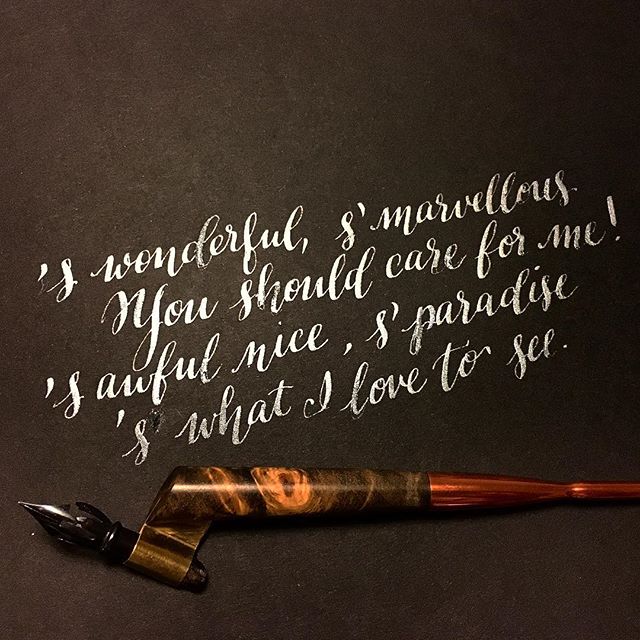 's wonderful, s' marvellous
You should care for me!
's awful nice, s' paradise
's what I love to see.